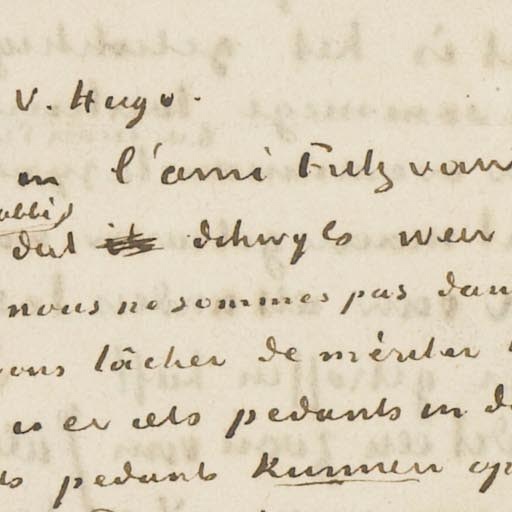 V. Hugo.
en l'ami Fritz van
abbis
dat dikwijls weer
nous ne sommes pas dan
ons tâcher de mériter
er iets pedants in d
ts pedants kunnen op